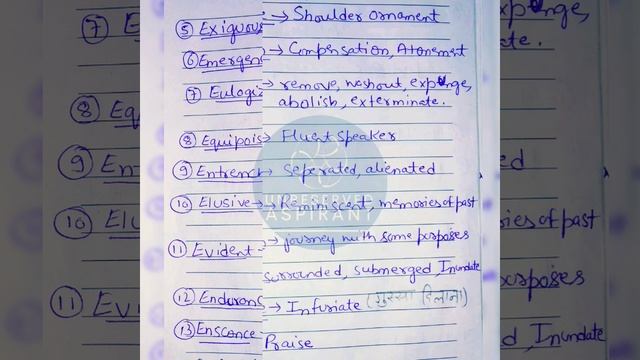 ⑤ Exiguous → Shoulder ornament
⑥ Emergen → Compensation, Atonement
⑦ Eulogiz → remove, washout, expunge,
abolish, exterminate.
⑧ Equipois → Fluent speaker
⑨ Entrench → Seperated, alienated
⑩ Elusive → → Reminiscent, memories of past
⑪ Evident → → journey with some purposes
surrounded, submerged, Inundate
⑫ Enduranc → Infuriate (गुस्सा दिलाना)
⑬ Ensconce Praise
UNRESERVED
ASPIRANT
⑦ E
⑧ Eq
⑨ En
⑩ Elu
⑪ Evi
xpunge,
te.
ed
ries of past
urposes
d, Inundate